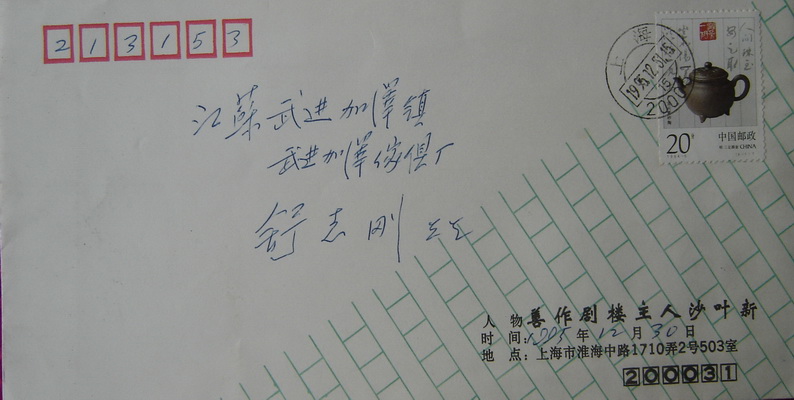 213153
上海
1995.12.31.15
200031
20分
中国邮政
CHINA
江蘇武进加澤镇
武进加澤傢俱厂
舒志刚
人物善作剧楼主人沙叶新
时间:1995年12月30日
地点:上海市淮海中路1710弄2号503室
200031